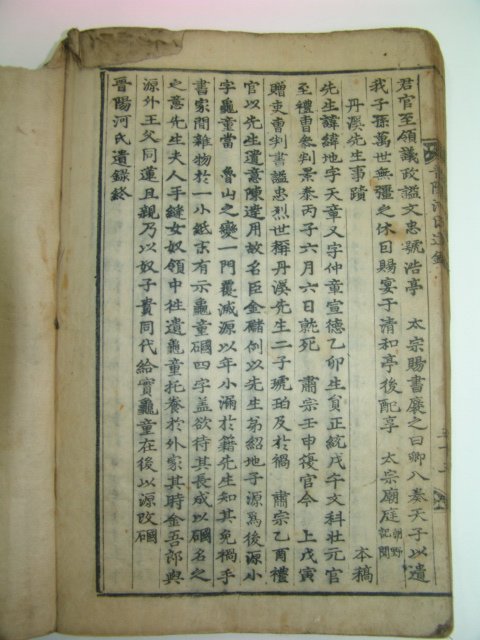 君官至領議政謚文忠號浩亭　太宗賜書褒之曰卿八奏天子以遺
我子孫萬世無彊之休日賜宴于清和亭後配享　太宗廟庭朝野記聞
丹溪先生事蹟　本稿
先生諱緯地字天章又字仲章宣德乙卯生負正統戊午文科壯元官
至禮曹參判景泰丙子六月六日就死　肅宗壬申復官今　上戊寅
贈吏曹判書謚忠烈世稱丹溪先生二子琥珀及於禍　肅宗乙酉禮
官以先生遺意陳達用故名臣金鏥例以先生弟紹地子源爲後源小
字龜童當　魯山之變一門覆滅源以年小漏於籍先生知其免禍手
書家間雜物於一小紙末有示龜童碅四字盖欲待其長成以碅名之
之意先生夫人手縫女奴領巾往遺龜童托養於外家其時金吾郎與
源外王父同蓮且親乃以奴子貴同代給實龜童在後以源改碅
晉陽河氏遺錄終